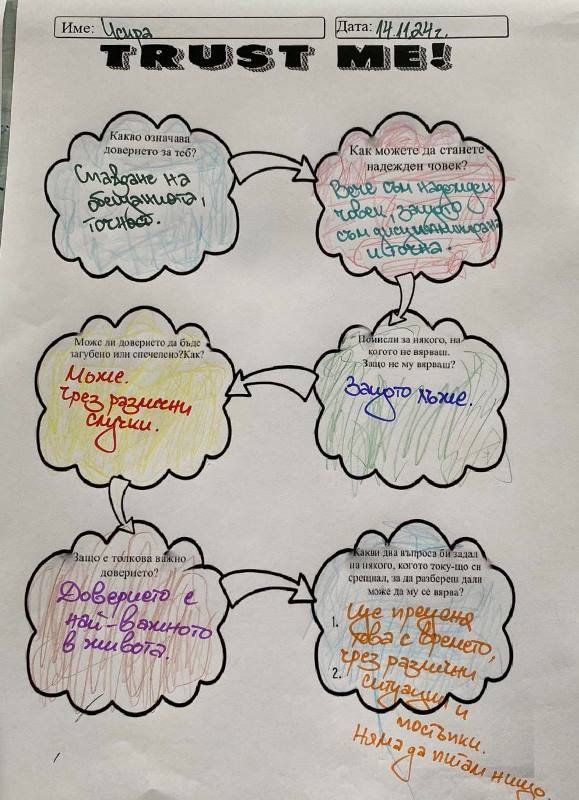 Име: Исира
Дата: 14.11.24г.
TRUST ME!
Какво означава
доверието за теб?
Спазване на
обещанията,
точност.
Как можете да станете
надежден човек?
Вече съм надежден
човек, защото
съм дисциплинирана
и точна.
Може ли доверието да бъде
загубено или спечелено?Как?
Може.
Чрез различни
случки.
Помисли за някого, на
когото не вярваш.
Защо не му вярваш?
Защото лъже.
Защо е толкова важно
доверието?
Доверието е
най-важното
в живота.
Какви два въпроса би задал
на някого, когото току-що си
срещнал, за да разбереш дали
може да му се вярва?
1. Ще преценя
това с времето,
чрез различни
2. ситуации и
постъпки.
Няма да питам нищо.